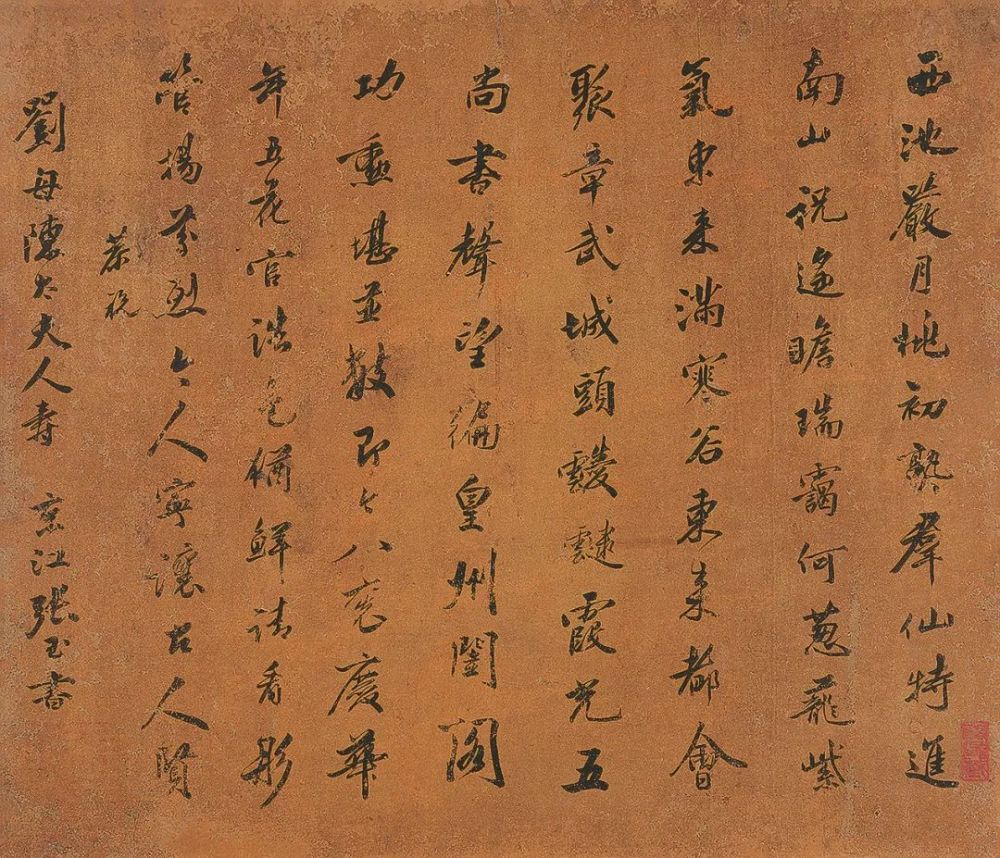 西池嚴月桃初熟羣仙特進
南山祝遥瞻瑞靄何葱蘢紫
氣東來滿寒谷東來都會
聚章武城頭靉靆霞光五
尚書聲望徧皇州閨閣
功勳堪並數即今八袠慶華
年五花官誥色猶鮮請看彤
管揚芬烈今人寧讓古人賢
恭祝
劉母陳太夫人壽 京江張玉書